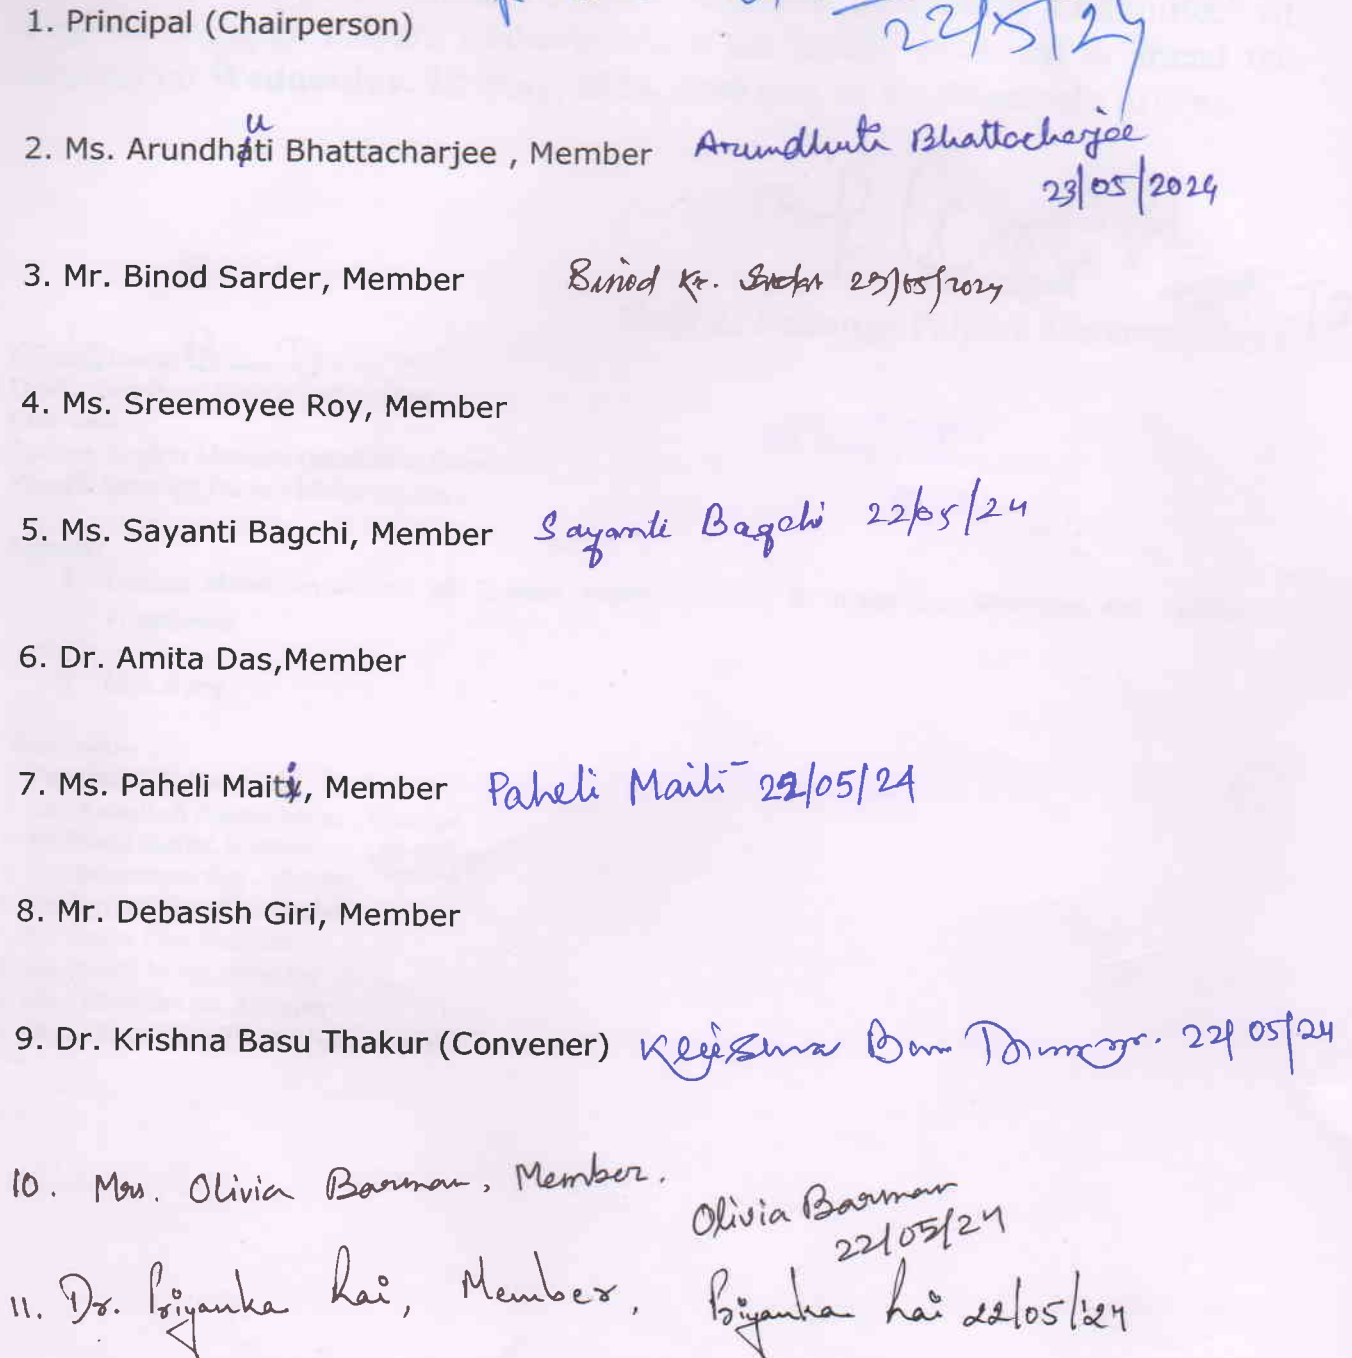 1. Principal (Chairperson)
22/5/24
2. Ms. Arundhuti Bhattacharjee , Member Arundhuti Bhattacharjee
23/05/2024
3. Mr. Binod Sarder, Member Binod Kr. 23/05/2024
4. Ms. Sreemoyee Roy, Member
5. Ms. Sayanti Bagchi, Member Sayanti Bagchi 22/05/24
6. Dr. Amita Das,Member
7. Ms. Paheli Maiti, Member Paheli Maiti 22/05/24
8. Mr. Debasish Giri, Member
9. Dr. Krishna Basu Thakur (Convener) Krishna Basu Thakur. 22/05/24
10. Mrs. Olivia Barman, Member.
Olivia Barman
22/05/24
11. Dr. Priyanka Rai, Member, Priyanka Rai 22/05/24